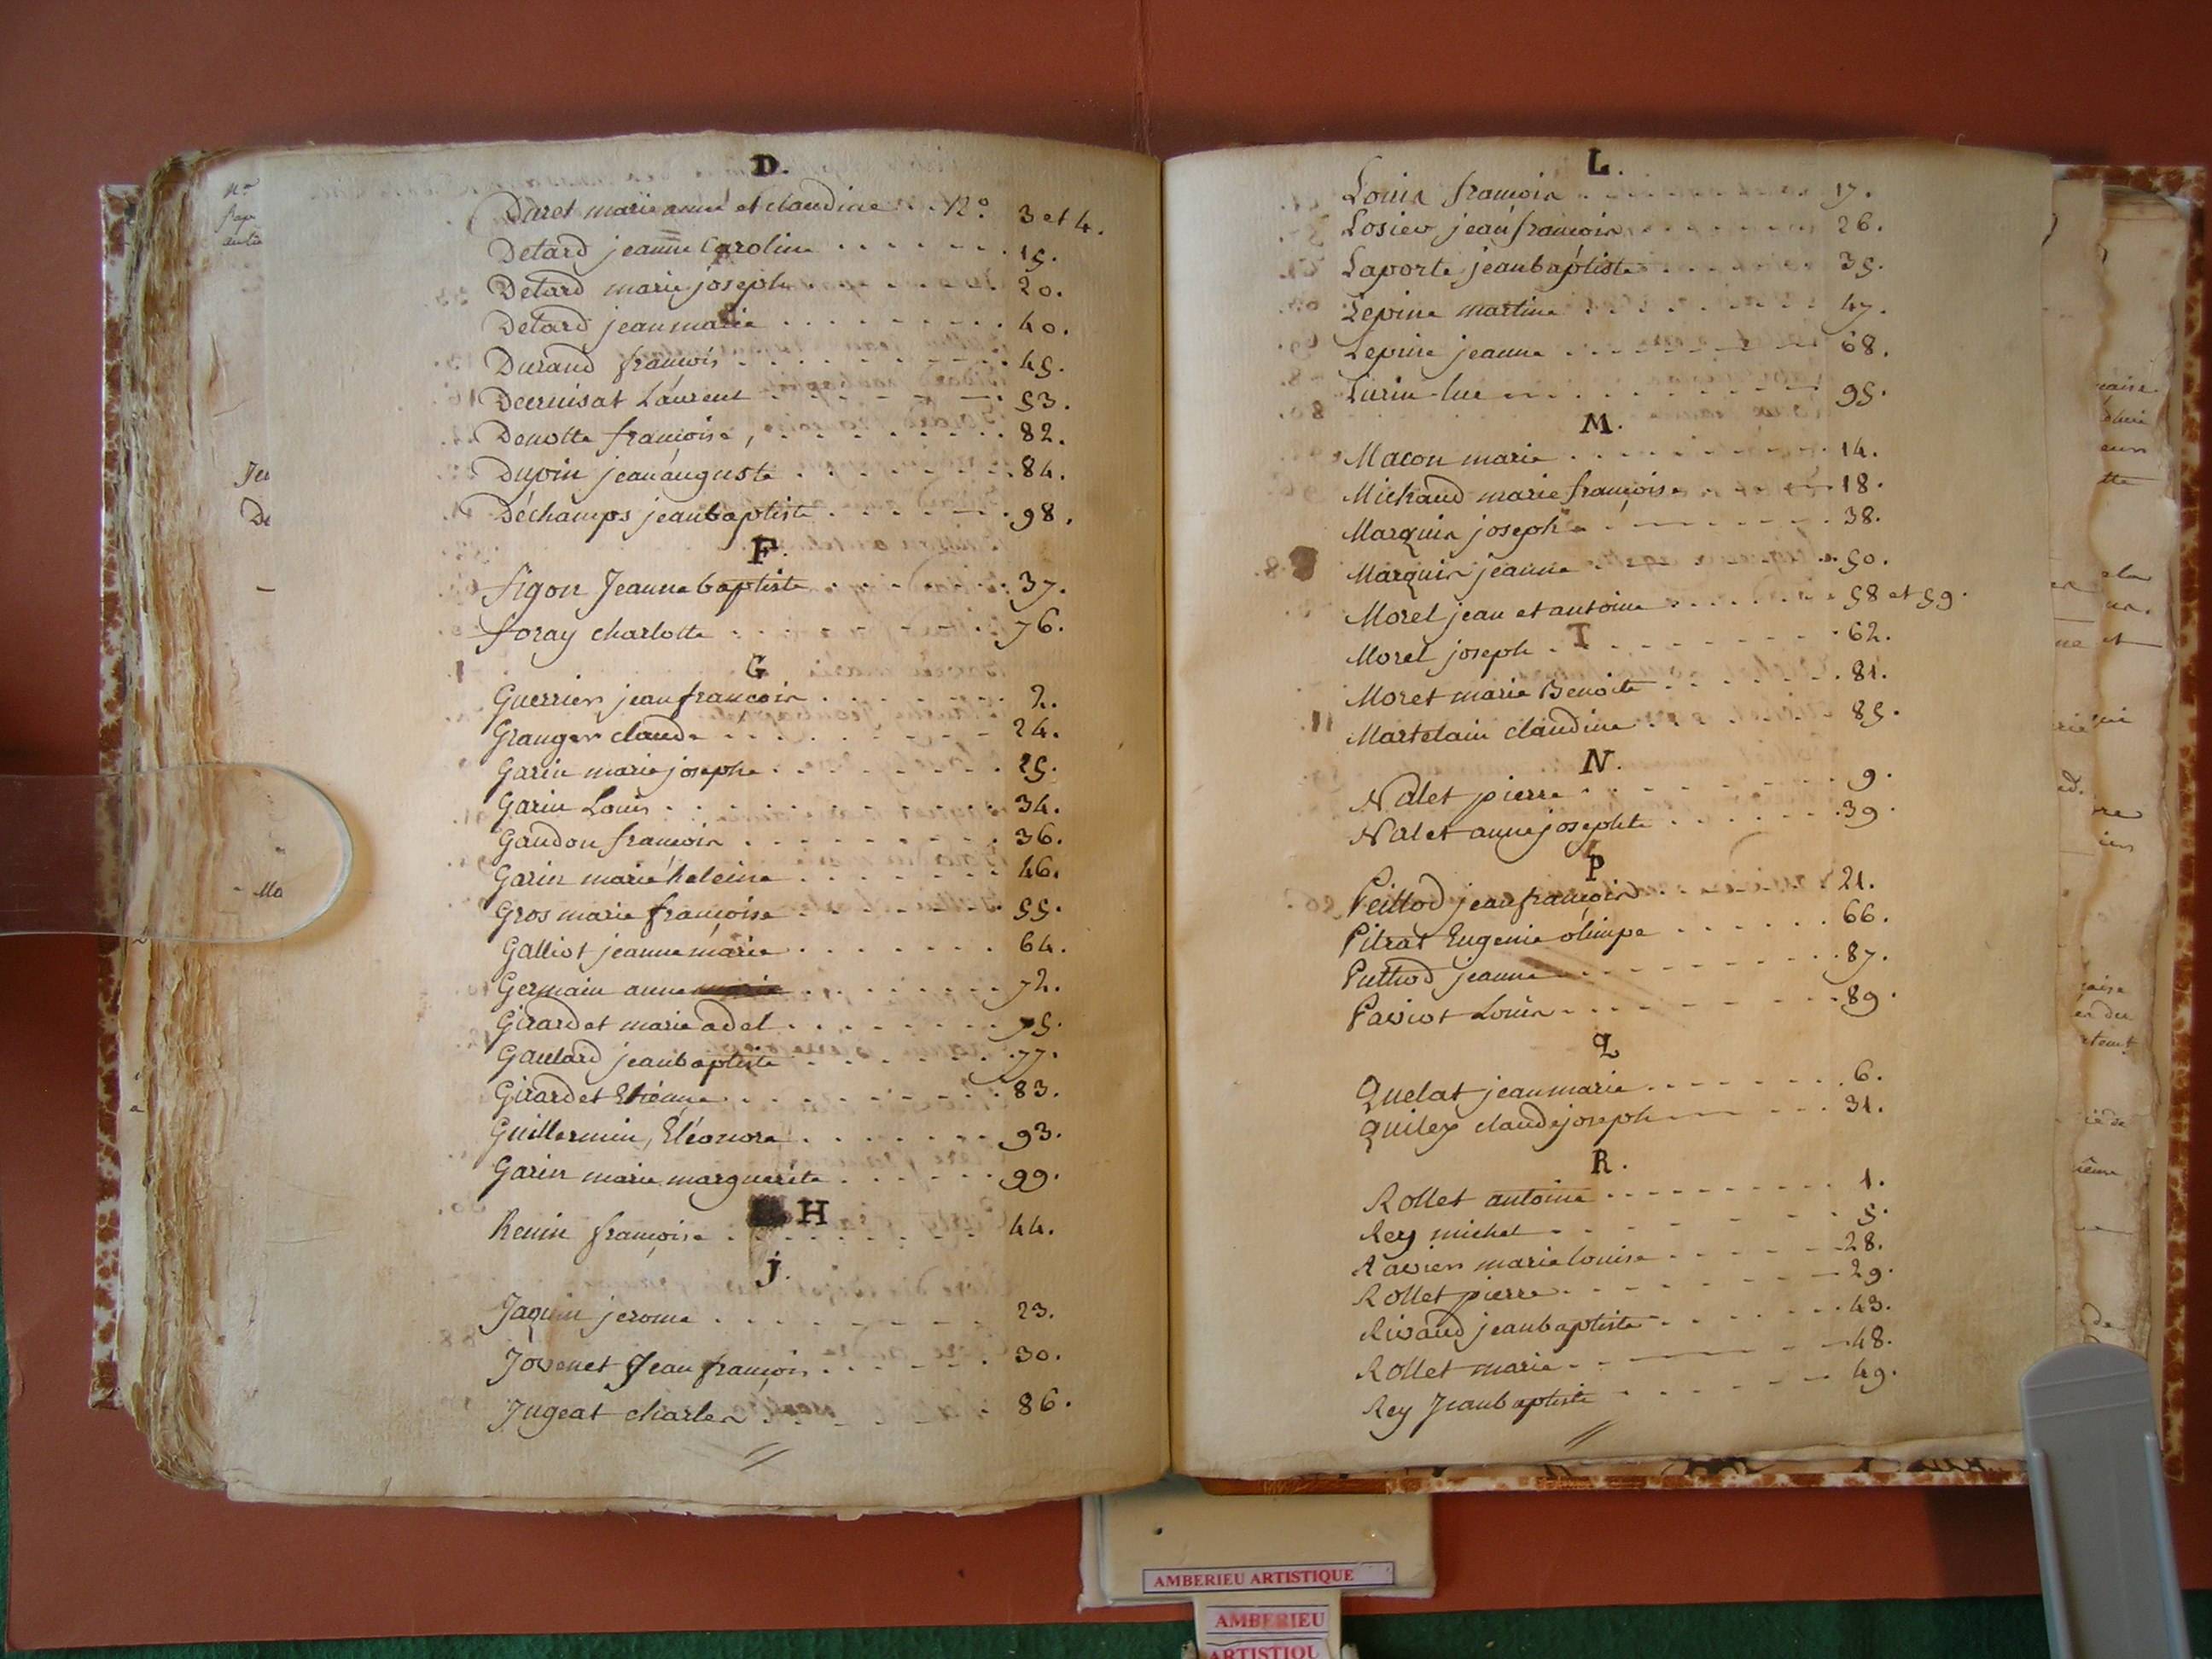 D.
Duret marie anne et claudine . . N.° 3 et 4.
Detard jeanne Caroline . . . . . . . 15.
Detard marie joseph . . . . . . . . 20.
Detard jean marie . . . . . . . . . 40.
Durand françois . . . . . . . . . 45.
Decruisat Laurent . . . . . . . . 53.
Denotte françoise, . . . . . . . . . 82.
Dupin jean auguste . . . . . . . . 84.
Déchamps jean baptiste . . . . . . . 98.
F.
figon Jeanne baptiste . . . . . . . . 37.
foray charlotte . . . . . . . . . . 76.
G
Guerrier jean francois . . . . . . . 2.
Granger claude . . . . . . . . . 24.
Garin marie josephe . . . . . . . . 25.
Garin Louis . . . . . . . . . . . 34.
Gandon francois . . . . . . . . . 36.
Garin marie heleine . . . . . . . . 46.
Gros marie françoise . . . . . . . . 55.
Galliot jeanne marie . . . . . . . . 64.
Germain anne . . . . . . . . 72.
Girardet marie adel . . . . . . . . . 75.
Gaulard jean baptiste . . . . . . . . 77.
Girardet Etiénne . . . . . . . . . . 83.
Guillermin, Eléonore . . . . . . . 93.
Garin marie marguerite . . . . . . 99.
H
henin françoise . . . . . . . . . 44.
j.
Jaquin jerome . . . . . . . . . 23.
Jovenet Jean françois . . . . . . 30.
Jugeat charles . . . . . . . . 86.
L.
Louis francois . . . . . . . . . . 17.
Losier jean francois . . . . . . . . 26.
Laporte jean baptiste . . . . . . . 35.
Lepine martine . . . . . . . . . 47.
Lepine jeanne . . . . . . . . . . 68.
Lurin luc . . . . . . . . . . . 95.
M.
Macon marie . . . . . . . . . . 14.
Michaud marie françoise . . . . . . 18.
Marquis joseph . . . . . . . . . 38.
Marquis jeanne . . . . . . . . . . 50.
Morel jean et antoine . . . . . . . 58 et 59.
Morel joseph . . . . . . . . . . 62.
Moret marie Benoite . . . . . . . 81.
Martelain claudine . . . . . . . . 85.
N.
Nalet pierre . . . . . . . . . 9.
Nalet anne josephte . . . . . . . 39.
P
Peillod jean françois . . . . . . . 21.
Pitrat Eugenie olimpe . . . . . . . 66.
Puthod jeanne . . . . . . . . . . 87.
Paviot Louis . . . . . . . . . . 89.
Q
Quelat jean marie . . . . . . . . 6.
Quiley claude joseph . . . . . . 31.
R.
Rollet antoine . . . . . . . . . . 1.
Rey michel . . . . . . . . . . 5.
Ravier marie louise . . . . . . . 28.
Rollet pierre . . . . . . . . . 29.
Rivaud jean baptiste . . . . . . . 43.
Rollet marie . . . . . . . . . 48.
Rey Jean baptiste . . . . . . . 49.
AMBERIEU ARTISTIQUE
AMBERIEU